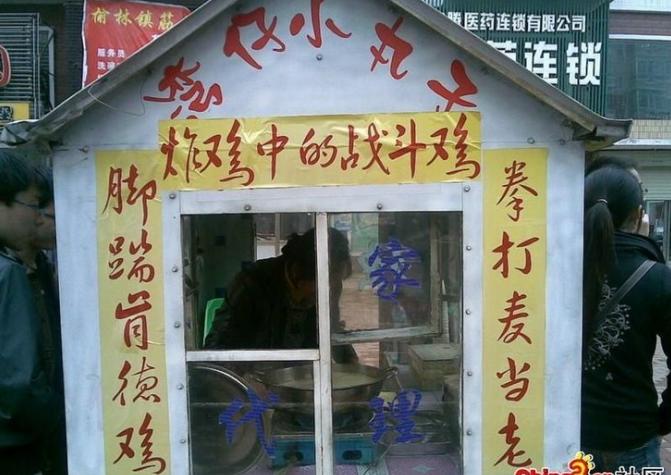 榆林镇
服务员
洗碗
医药连锁有限公司
药连锁
小丸子
炸鸡中的战斗鸡
脚踹肯德鸡
拳打麦当老
家
代理
社区